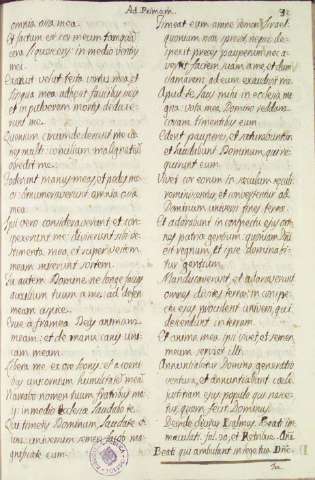 Ad Primam.
omnia ossa mea.
Et factum est cor meum tanquam
cera liquescens in medio ventris
mei.
Exaruit velut testa virtus mea, et
lingua mea adhęsit faucibus meis
et in pulverem mortis deduxe-
runt me.
Quoniam circumdederunt me ca-
nes multi concilium malignatiũ
obsedit me.
Foderunt manus meas et pedes me-
os dinumeraverunt omnia ossa
mea.
Ipsi vero consideraverunt et cons-
pexerunt me: diviserunt sibi ves-
timenta mea, et super vestem
meam miserunt sortem.
Tu autem Domine ne longe facias
auxilium tuum a me: ad defen
meam aspice.
Erue a framea Deus animam
meam: et de manu canis uni-
cam meam.
Libera me ex ore leonis, et a corni
bus unicornium humilitatẽ meã
Narrabo nomen tuum fratribus me
is: in medio Ecclesia laudabo te.
Qui timetis Dominum, laudate e-
um: universum semen Jacob ma-
gnificate eum.
Timeat eum omne semen Israel
quoniam non sprevit neque de-
spexit preces pauperum: nec a-
vertit faciem suam a me, et dum
clamarem ad eum exaudivit me.
Apud te laus mihi in ecclesia ma
gna: vota mea Domino reddam
coram timentibus eum.
Edent pauperes, et saturabuntur
et laudabunt Dominum, qui re-
quirunt eum
Vivet cor eorum in sęculum sęculi
reminiscentur, et convertentur ad
Dominum universi fines terrę.
Et adorabunt in conspectu ejus om-
nes patrię gentium. quoniam Dñi
est regnum, et ipse domina-
tur gentium.
Manducaverunt, et adoraverunt
omnes divites terrę: in conspe-
ctu ejus procident universi, qui
descendunt in terram.
Et anima mea ipsi vivet, et semen
meum serviet illi.
Annuntiabitur Domino generatio
ventura, et annuntiabunt cæli
justitiam ejus populo qui nasce-
tur, quem fecit Dominus
Deinde dicitur Psalmus Beati im
maculati
Beati qui ambulant in lege tua Dñe.